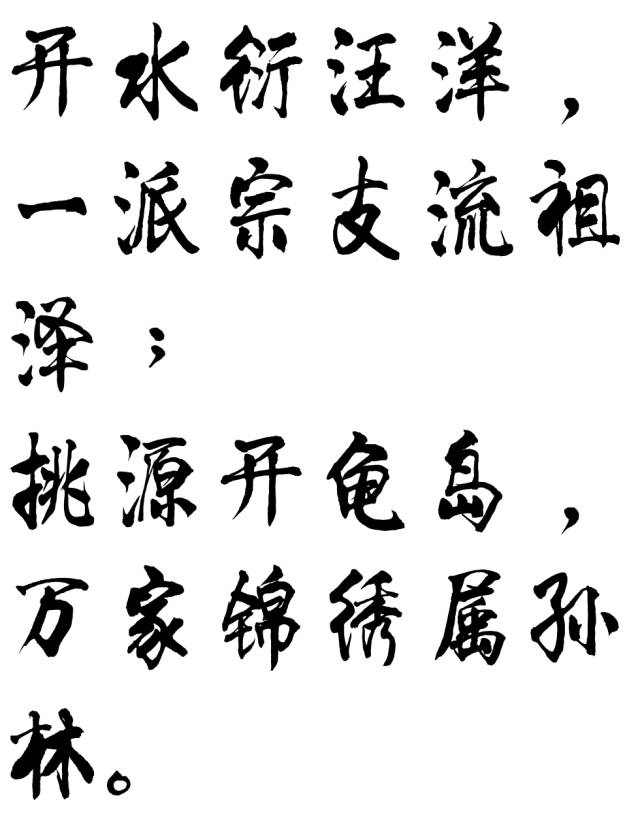 开水衍汪洋，
一派宗支流祖
泽；
挑源开龟岛，
万家锦绣属孙
林。